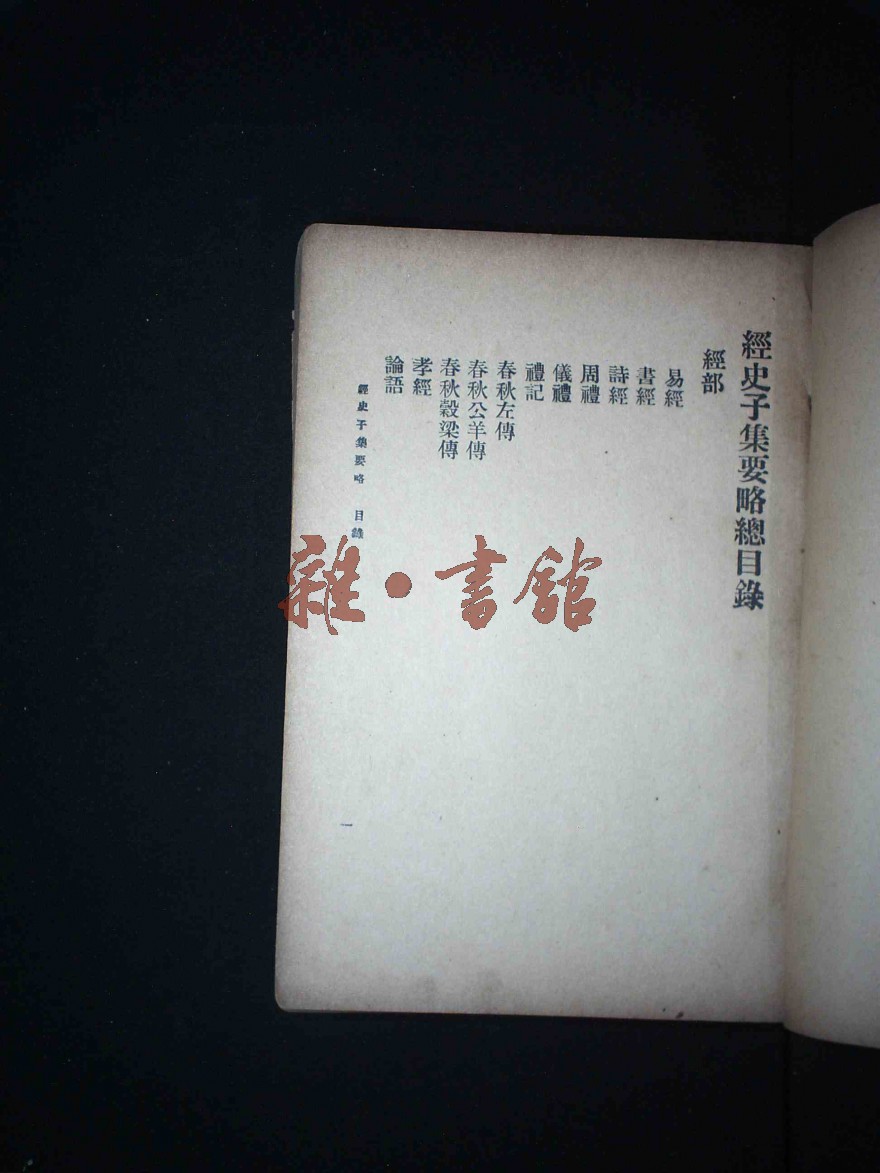 經史子集要略總目錄
經部
易經
書經
詩經
周禮
儀禮
禮記
春秋左傳
春秋公羊傳
春秋穀梁傳
孝經
論語
經史子集要略 目錄
一
雜·書館